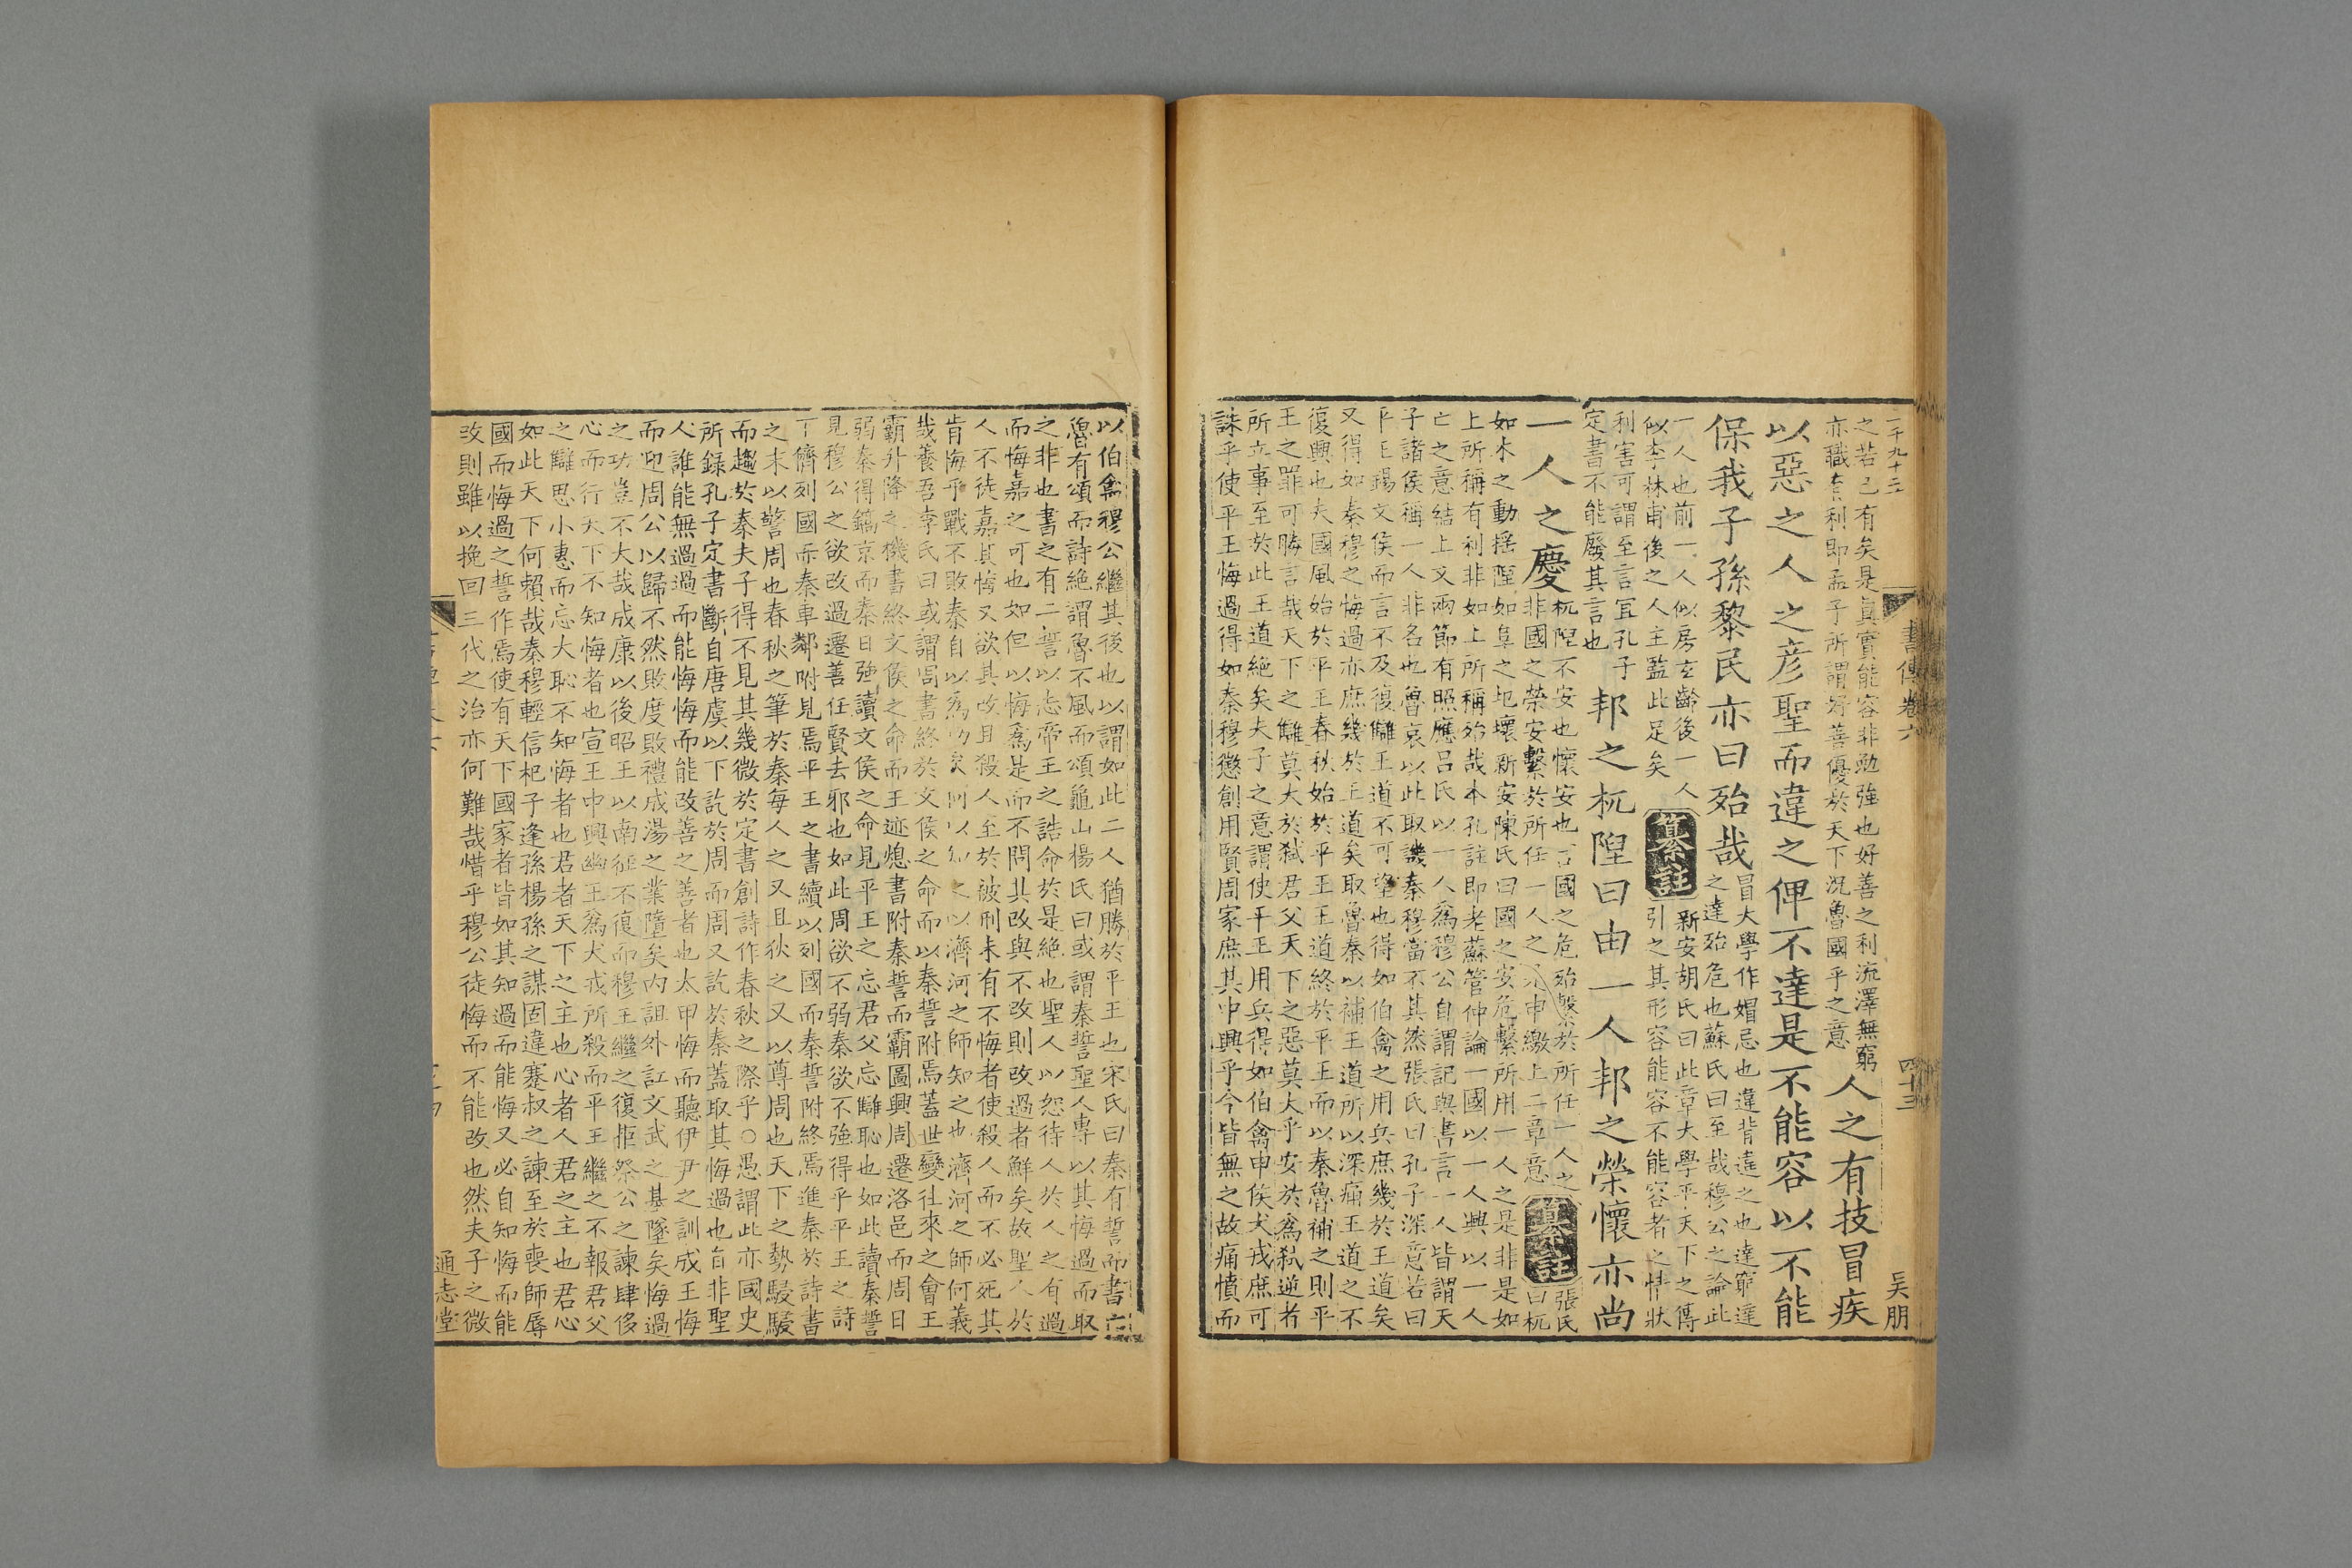 二千九十三
書傳卷六
四十三
吴朋
之若已有矣是真實能容非勉強也好善之利流澤無窮
亦職有利即孟子所謂好善優於天下況魯國乎之意
人之有技冒疾
以惡之人之彦聖而違之俾不達是不能容以不能
保我子孫黎民亦曰殆哉
冒大學作媢忌也違背違之也達窮達
之達殆危也蘇氏曰至哉穆公之論此
一人也前一人似房玄齡後一人
似李林甫後之人主監此足矣
纂註
新安胡氏曰此章大學平天下之傳
引之其形容能容不能容者之情狀
利害可謂至言宜孔子
定書不能廢其言也
邦之杌隉曰由一人邦之榮懷亦尚
一人之慶
杌隉不安也懷安也言國之危殆繫於所任一人之
非國之榮安繫於所任一人之申繳上二章意
纂註
張氏
曰杌
如木之動摇隉如阜之圮壞新安陳氏曰國之安危繫所用一人之是非是如
上所稱有利非如上所稱殆哉本孔註即老蘇管仲論一國以一人興以一人
亡之意結上文兩節有照應吕氏以一人爲穆公自謂記與書言一人皆謂天
子諸侯稱一人非名也魯哀以此取譏秦穆當不其然張氏曰孔子深意若曰
平王錫文侯而言不及復讎王道不可望也得如伯禽之用兵庶幾於王道矣
又得如秦穆之悔過亦庶幾於王道矣取魯秦以補王道所以深痛王道之不
復興也夫國風始於平王春秋始於平王王道終於平王而以秦魯補之則平
王之罪可勝言哉天下之讎莫大於弑君父天下之惡莫大乎安於爲弑逆者
所立事至於此王道絶矣夫子之意謂使平王用兵得如伯禽申侯犬戎庶可
誅乎使平王悔過得如秦穆懲創用賢周家庶其中興乎今皆無之故痛憤而
以伯禽穆公繼其後也以謂如此二人猶勝於平王也宋氏曰秦有誓而書亡
魯有頌而詩絶謂魯不風而頌龜山楊氏曰或謂秦誓聖人專以其悔過而取
之非也書之有二誓以志帝王之誥命於是絶也聖人以怨待人於人之有過
而悔嘉之可也如但以悔爲是而不問其改與不改則改過者鮮矣故聖人於
人不徒嘉其悔又欲其改且殺人至於被刑未有不悔者使殺人而不必死其
肯悔乎戰不敗秦自以爲功矣何以知之以濟河之師知之也濟河之師何義
哉養吾李氏曰或謂書終於文侯之命而以秦誓附焉蓋世變往來之會王
霸升降之機書終文侯之命而王迹熄書附秦誓而霸圖興周遷洛邑而周日
弱秦得鎬京而秦日強讀文侯之命見平王之忘君父忘讎恥也如此讀秦誓
見穆公之欲改過遷善任賢去邪也如此周欲不弱秦欲不強得乎平王之詩
下儕列國而秦車鄰附見焉平王之書續以列國而秦誓附終焉進秦於詩書
之末以警周也春秋之筆於秦每人之又且狄之又以尊周也天下之勢駸駸
而趨於秦夫子得不見其幾微於定書創詩作春秋之際乎〇愚謂此亦國史
所錄孔子定書斷自唐虞以下訖於周而周又訖於秦蓋取其悔過也自非聖
人誰能無過過而能悔悔而能改善之善者也太甲悔而聽伊尹之訓成王悔
而迎周公以歸不然敗度敗禮成湯之業墮矣内詛外訌文武之基墜矣悔過
之功豈不大哉成康以後昭王以南征不復而穆王繼之復拒祭公之諫肆侈
心而行天下不知悔者也宣王中興幽王爲犬戎所殺而平王繼之不報君父
之讎思小惠而忘大恥不知悔者也君者天下之主也心者人君之主也君心
如此天下何賴哉秦穆輕信杞子逢孫楊孫之謀固違蹇叔之諫至於喪師辱
國而悔過之誓作焉使有天下國家者皆如其知過而能悔又必自知悔而能
改則雖以挽回三代之治亦何難哉惜乎穆公徒悔而不能改也然夫子之微
通志堂